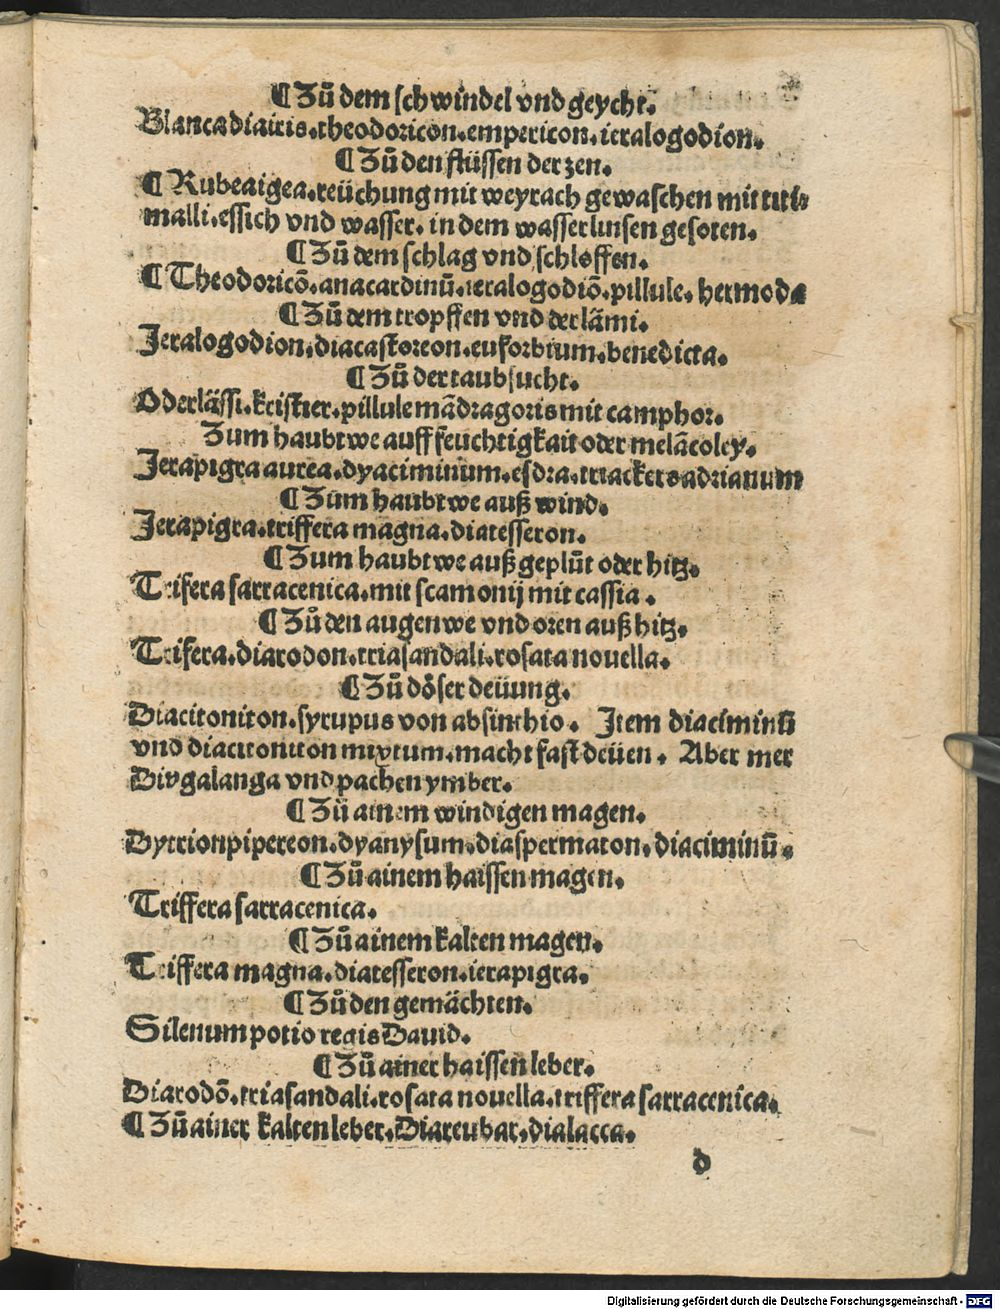 ¶ Zů dem schwindel vnd geycht.
Blanca diairis. theodoricon. empericon. ieralogodion.
¶ Zů den flüssen der zen.
¶ Rubea igea. reüchung mit weyrach gewaschen mit titi-
malli. essich vnd wasser. in dem wasserlinsen gesoten.
¶ Zů dem schlag vnd schloffen.
¶ Theodoricō. anacardinū. ieralogodiō. pillule. hermoda
¶ Zů dem tropffen vnd der lāmi.
Jeralogodion. diacastoreon. euforbium. benedicta.
¶ Zů der taubsucht.
Oderlässi. kristier. pillule mādragoris mit camphor.
Zum haubtwe auff feuchtigkait oder melācoley.
Jerapigra aurea. dyaciminum. esdra. triackers adrianum
¶ Zum haubtwe auß wind.
Jerapigra. triffera magna. diatesseron.
¶ Zum haubtwe auß geplüt oder hitz.
Trifera sarracenica. mit scamonij mit cassia.
¶ Zů den augenwe vnd oren auß hitz.
Trifera. diarodon. triasandali. rosata nouella.
¶ Zů döser deüung.
Diacitoniton. syrupus von absinthio. Item diaciminū
vnd diacitoniton mixtum. macht fast deüen. Aber mer
Diogalanga vnd pachen ymber.
¶ Zů ainem windigen magen.
Dytrionpipereon. dyanysum. diaspermaton. diaciminū.
¶ Zů ainem haissen magen.
Triffera sarracenica.
¶ Zů ainem kalten magen.
Triffera magna. diatesseron. ierapigra.
¶ Zů den gemächten.
Silenum potio regis Dauid.
¶ Zů ainer haissen leber.
Diarodō. triasandali. rosata nouella. triffera sarracenica.
¶ Zů ainer kalten leber. Diareubar. dialacca.
d
Digitalisierung gefördert durch die Deutsche Forschungsgemeinschaft - DFG